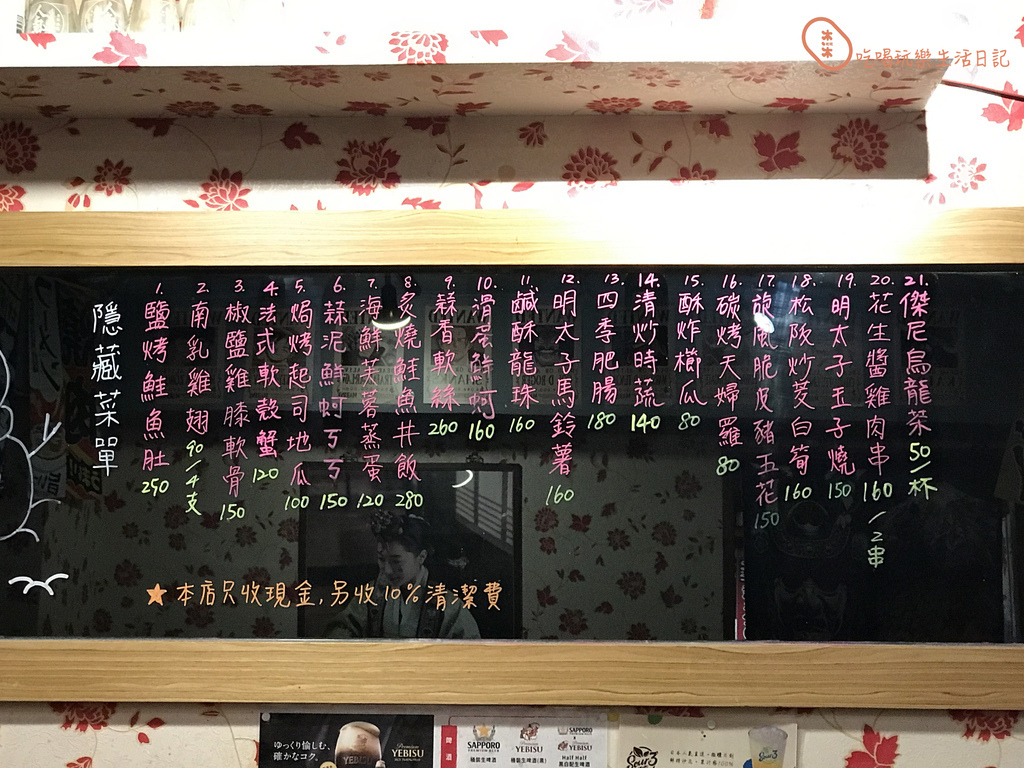 木木
吃喝玩樂生活日記
隱藏菜單
1. 鹽烤鮭魚肚 250
2. 南乳雞翅 90/4支
3. 椒鹽雞膝軟骨 150
4. 法式軟殼蟹 120
5. 焗烤起司地瓜 100
6. 蒜泥鮮蚵ㄎㄎ 150
7. 海鮮芙蓉蒸蛋 120
8. 炙燒鮭魚丼飯 280
9. 蒜香軟絲 260
10. 滑蛋鮮蚵 160
11. 鹹酥龍珠 160
12. 明太子馬鈴薯 160
13. 四季肥腸 180
14. 清炒時蔬 140
15. 酥炸櫛瓜 80
16. 碳烤天婦羅 80
17. 旋風脆皮豬五花 150
18. 松阪炒茭白筍 160
19. 明太子玉子燒 150
20. 花生醬雞肉串 160/2串
21. 傑尼烏龍茶 50/杯
★本店只收現金,另收10%清潔費
ゆっくり愉しむ、
確かなコク。
PREMIUM
YEBISU
啤酒
SAPPORO
PREMIUM BEER
桶裝生啤酒
YEBISU
桶裝生啤酒(黑)
SAPPORO
YEBISU
Half Half
黑白配生啤酒
Sour3
Sour3